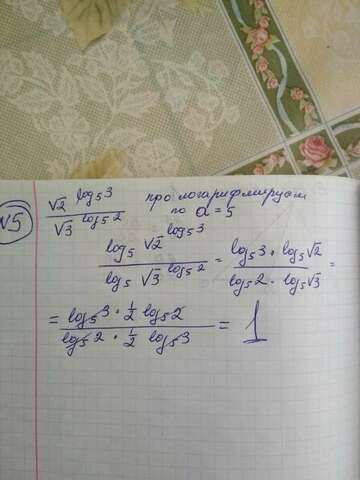 №5 √2^log₅3 / √3^log₅2 прологарифмируем
по a = 5
log₅ √2^log₅3 / log₅ √3^log₅2 = log₅3 · log₅√2 / log₅2 · log₅√3 =
= log₅3 · 1/2 log₅2 / log₅2 · 1/2 log₅3 = 1